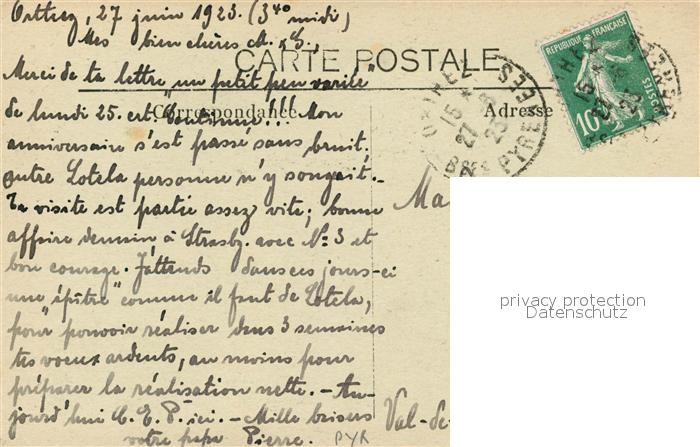 Orthez, 27 juin 1923. (3 40 midi)
Mes bien chères M. & S.,
CARTE POSTALE
Merci de ta lettre "un petit peu varile"
de lundi 25. crt. Continue!!! Mon
Correspondance
Adresse
anniversaire s'est passé sans bruit;
outre Lotela personne n'y songait.-
Ta visite est partie assez vite; bonne
affaire demain à Strasbg. avec No 3 et
bon courage. J'attends dans ces jours-ci
une "épître" comme il faut de Lotela,
pour pouvoir réaliser dans 3 semaines
tes voeux ardents, au moins pour
préparer la réalisation nette. - Au-
jourd'hui C. E. P. ici. - Mille baisers
votre papa Pierre.
PYR
Ma
Val-de
REPUBLIQUE FRANÇAISE
POSTES
10
15
27
23
PYRENEES
privacy protection
Datenschutz